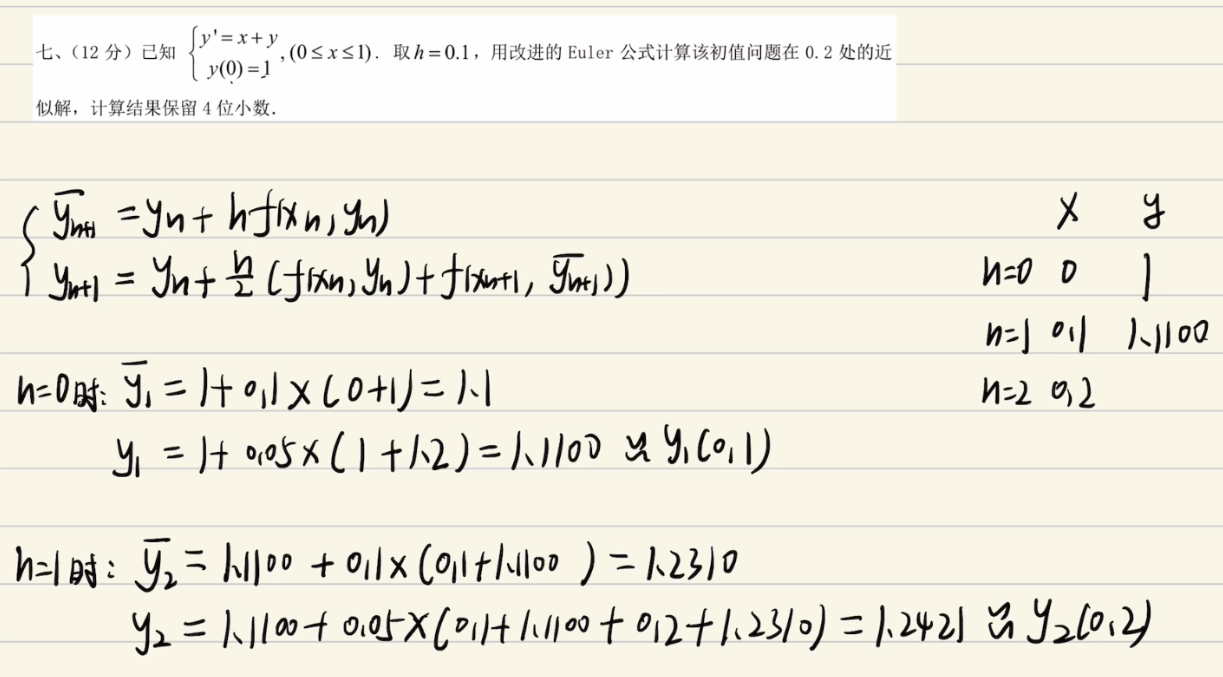 七、（12 分）已知 { y'=x+y , y(0)=1 , (0≤x≤1). 取 h=0.1，用改进的 Euler 公式计算该初值问题在 0.2 处的近
似解，计算结果保留 4 位小数.
{ ȳₙ₊₁ = yₙ + hf(xₙ, yₙ)
yₙ₊₁ = yₙ + h/2 (f(xₙ, yₙ) + f(xₙ₊₁, ȳₙ₊₁))
x y
n=0 0 1
n=1 0.1 1.1100
n=2 0.2
n=0时: ȳ₁ = 1+0.1×(0+1) = 1.1
y₁ = 1+0.05×(1+1.2) = 1.1100 ≈ y₁(0.1)
n=1时: ȳ₂ = 1.1100 + 0.1×(0.1+1.1100) = 1.2310
y₂ = 1.1100 + 0.05×(0.1+1.1100+0.2+1.2310) = 1.2421 ≈ y₂(0.2)